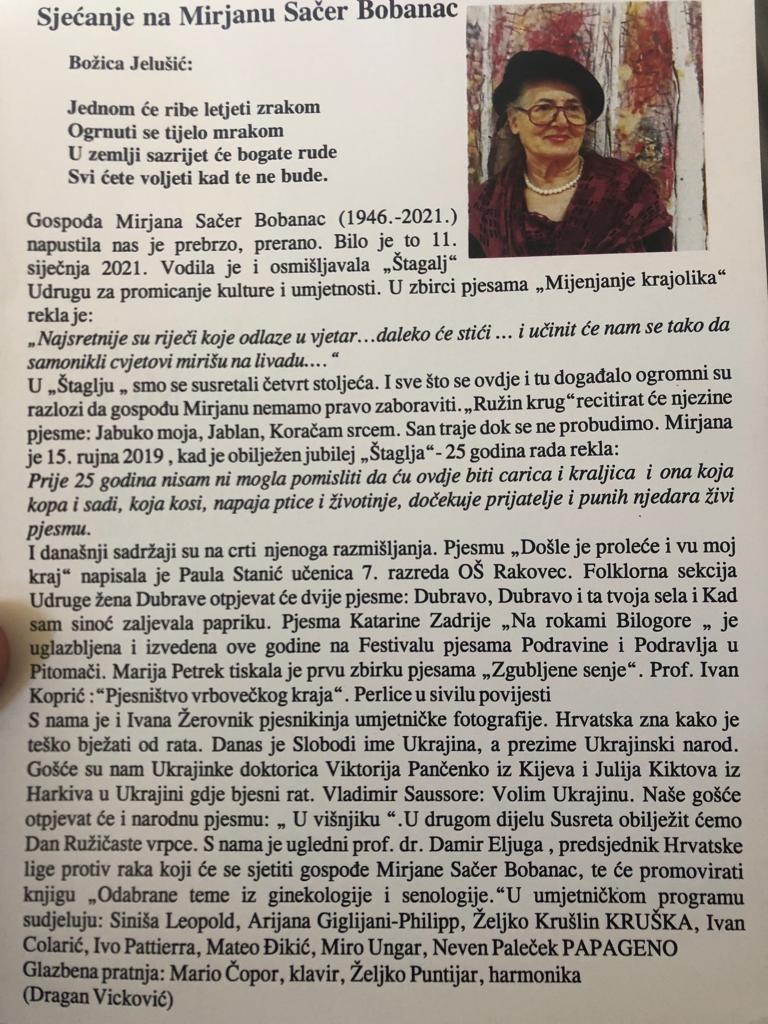 Sjećanje na Mirjanu Sačer Bobanac
Božica Jelušić:
Jednom će ribe letjeti zrakom
Ogrnuti se tijelo mrakom
U zemlji sazrijet će bogate rude
Svi ćete voljeti kad te ne bude.
Gospođa Mirjana Sačer Bobanac (1946.-2021.)
napustila nas je prebrzo, prerano. Bilo je to 11.
siječnja 2021. Vodila je i osmišljavala „Štagalj“
Udrugu za promicanje kulture i umjetnosti. U zbirci pjesama „Mijenjanje krajolika“
rekla je:
„Najsretnije su riječi koje odlaze u vjetar…daleko će stići … i učinit će nam se tako da
samonikli cvjetovi mirišu na livadu.… “
U „Štaglju „ smo se susretali četvrt stoljeća. I sve što se ovdje i tu događalo ogromni su
razlozi da gospođu Mirjanu nemamo pravo zaboraviti.„Ružin krug“recitirat će njezine
pjesme: Jabuko moja, Jablan, Koračam srcem. San traje dok se ne probudimo. Mirjana
je 15. rujna 2019 , kad je obilježen jubilej „Štaglja“- 25 godina rada rekla:
Prije 25 godina nisam ni mogla pomisliti da ću ovdje biti carica i kraljica i ona koja
kopa i sadi, koja kosi, napaja ptice i životinje, dočekuje prijatelje i punih njedara živi
pjesmu.
I današnji sadržaji su na crti njenoga razmišljanja. Pjesmu „Došle je proleće i vu moj
kraj“ napisala je Paula Stanić učenica 7. razreda OŠ Rakovec. Folklorna sekcija
Udruge žena Dubrave otpjevat će dvije pjesme: Dubravo, Dubravo i ta tvoja sela i Kad
sam sinoć zaljevala papriku. Pjesma Katarine Zadrije „Na rokami Bilogore „ je
uglazbljena i izvedena ove godine na Festivalu pjesama Podravine i Podravlja u
Pitomači. Marija Petrek tiskala je prvu zbirku pjesama „Zgubljene senje“. Prof. Ivan
Koprić :“Pjesništvo vrbovečkog kraja“. Perlice u sivilu povijesti
S nama je i Ivana Žerovnik pjesnikinja umjetničke fotografije. Hrvatska zna kako je
teško bježati od rata. Danas je Slobodi ime Ukrajina, a prezime Ukrajinski narod.
Gošće su nam Ukrajinke doktorica Viktorija Pančenko iz Kijeva i Julija Kiktova iz
Harkiva u Ukrajini gdje bjesni rat. Vladimir Saussore: Volim Ukrajinu. Naše gošće
otpjevat će i narodnu pjesmu: „ U višnjiku “.U drugom dijelu Susreta obilježit ćemo
Dan Ružičaste vrpce. S nama je ugledni prof. dr. Damir Eljuga , predsjednik Hrvatske
lige protiv raka koji će se sjetiti gospođe Mirjane Sačer Bobanac, te će promovirati
knjigu „Odabrane teme iz ginekologije i senologije.“U umjetničkom programu
sudjeluju: Siniša Leopold, Arijana Giglijani-Philipp, Željko Krušlin KRUŠKA, Ivan
Colarić, Ivo Pattierra, Mateo Đikić, Miro Ungar, Neven Paleček PAPAGENO
Glazbena pratnja: Mario Čopor, klavir, Željko Puntijar, harmonika
(Dragan Vicković)